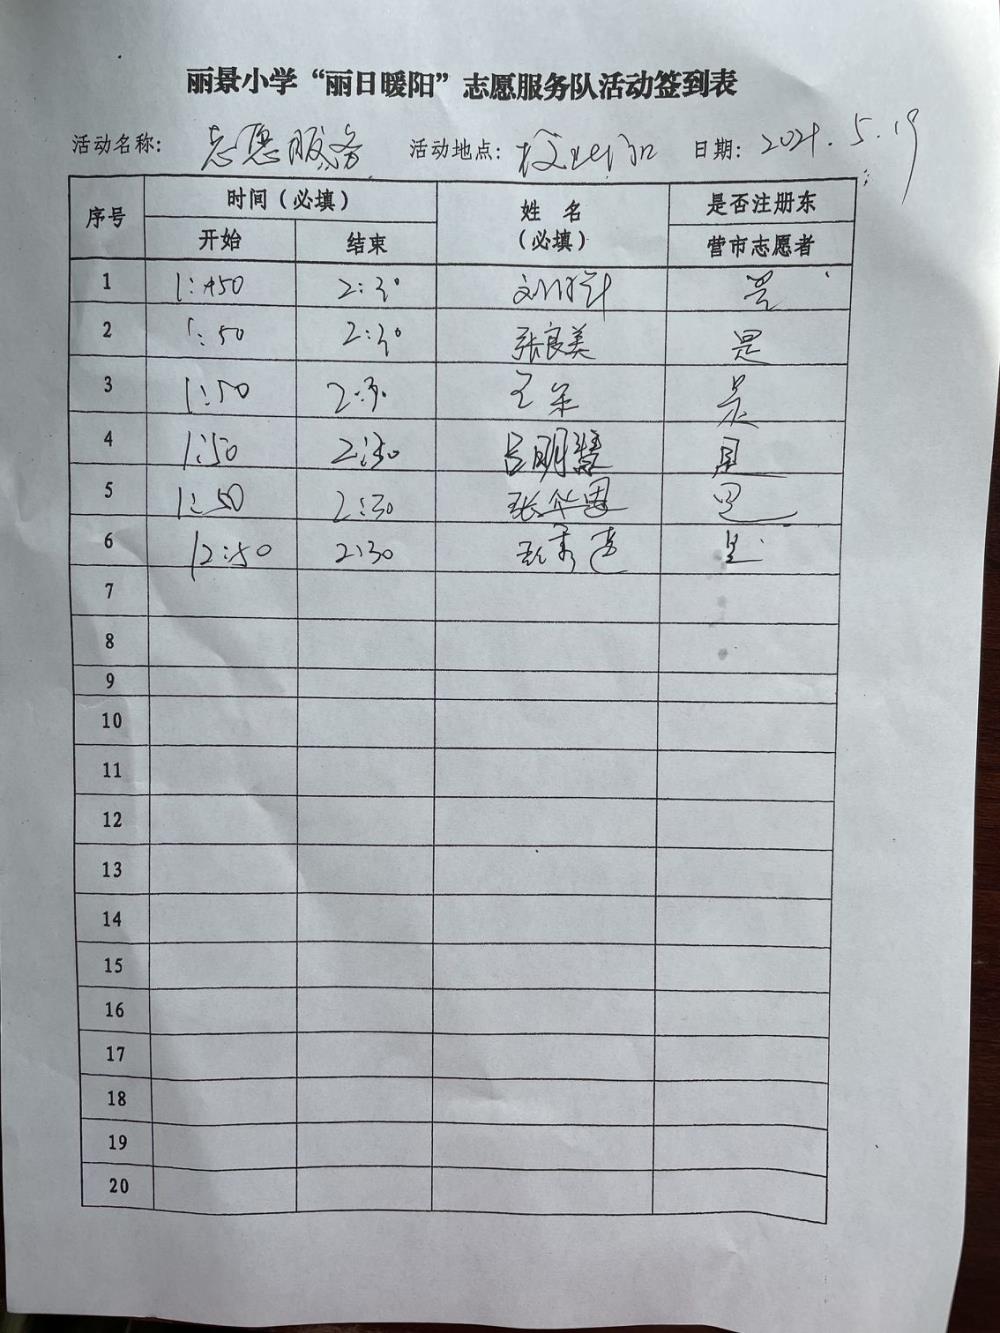 丽景小学“丽日暖阳”志愿服务队活动签到表
活动名称: 志愿服务 活动地点: 日期: 2021.5.19
序号 时间(必填) 姓 名 (必填) 是否注册东营市志愿者
开始 结束
1 1:50 2:30 是
2 1:50 2:30 张良美 是
3 1:50 2:30 是
4 1:50 2:30 吕明慧 是
5 1:50 2:30 是
6 12:50 2:30 是
7
8
9
10
11
12
13
14
15
16
17
18
19
20